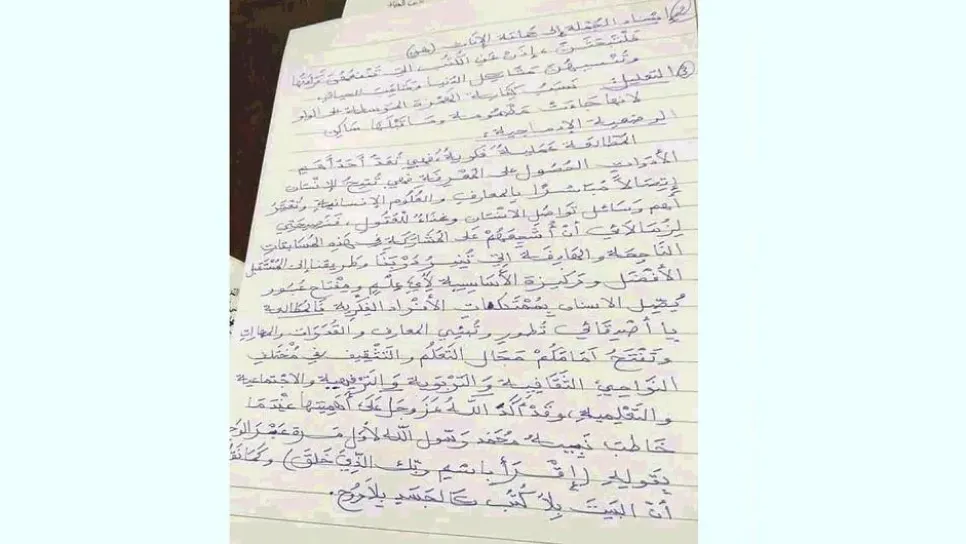 ② إسناد الجملة إلى جماعة الإناث (هن)
فلتبحثن، إذن عن الكتب التي تنفعهن قراءتها
وتنسيهن مشاكل الدنيا ومتاعب الحياة.
③ التعليل: نسب كتابة الهمزة المتوسطة على الواو
لأنها جاءت مضمومة وما قبلها ساكن
الوضعية الإدماجية:
المطالعة عملية فكرية فهي تعد أحد أهم
الأدوات الحصول على المعرفة فهي تتيح للإنسان
إتصالاً مباشراً بالمعارف والعلوم الإنسانية وتعتبر
أهم وسائل تواصل الانسان وغذاء للعقول، فنصيحتي
لزملائي أن أشجعهم على المشاركة في هذه المسابقات
الناجحة والهادفة التي تنير دربنا وطريقنا إلى المستقبل
الأفضل وركيزة الأساسية لأي علم ومفتاح عبور
الانسان بممتلكات الأفراد الفكرية فالمطالعة
يا أصدقائي تطور وتنمي المعارف والقدرات والمهارات
وتفتح أمامكم مجال التعلم والتثقيف في مختلف
النواحي الثقافية والتربوية والترفيهية والاجتماعية
والتعلمية، وقد أكد الله عز وجل على أهميتها عندما
خاطب نبيه محمد رسول الله لأول مرة عبر الوحي
بقوله (إقرأ باسم ربك الذي خلق) وكما
أن البيت بلا كتب كالجسد بلا روح.